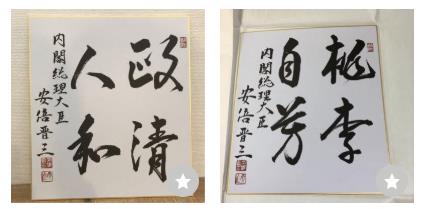 政清
人和
内閣総理大臣
安倍晋三
桃李
自芳
内閣総理大臣
安倍晋三